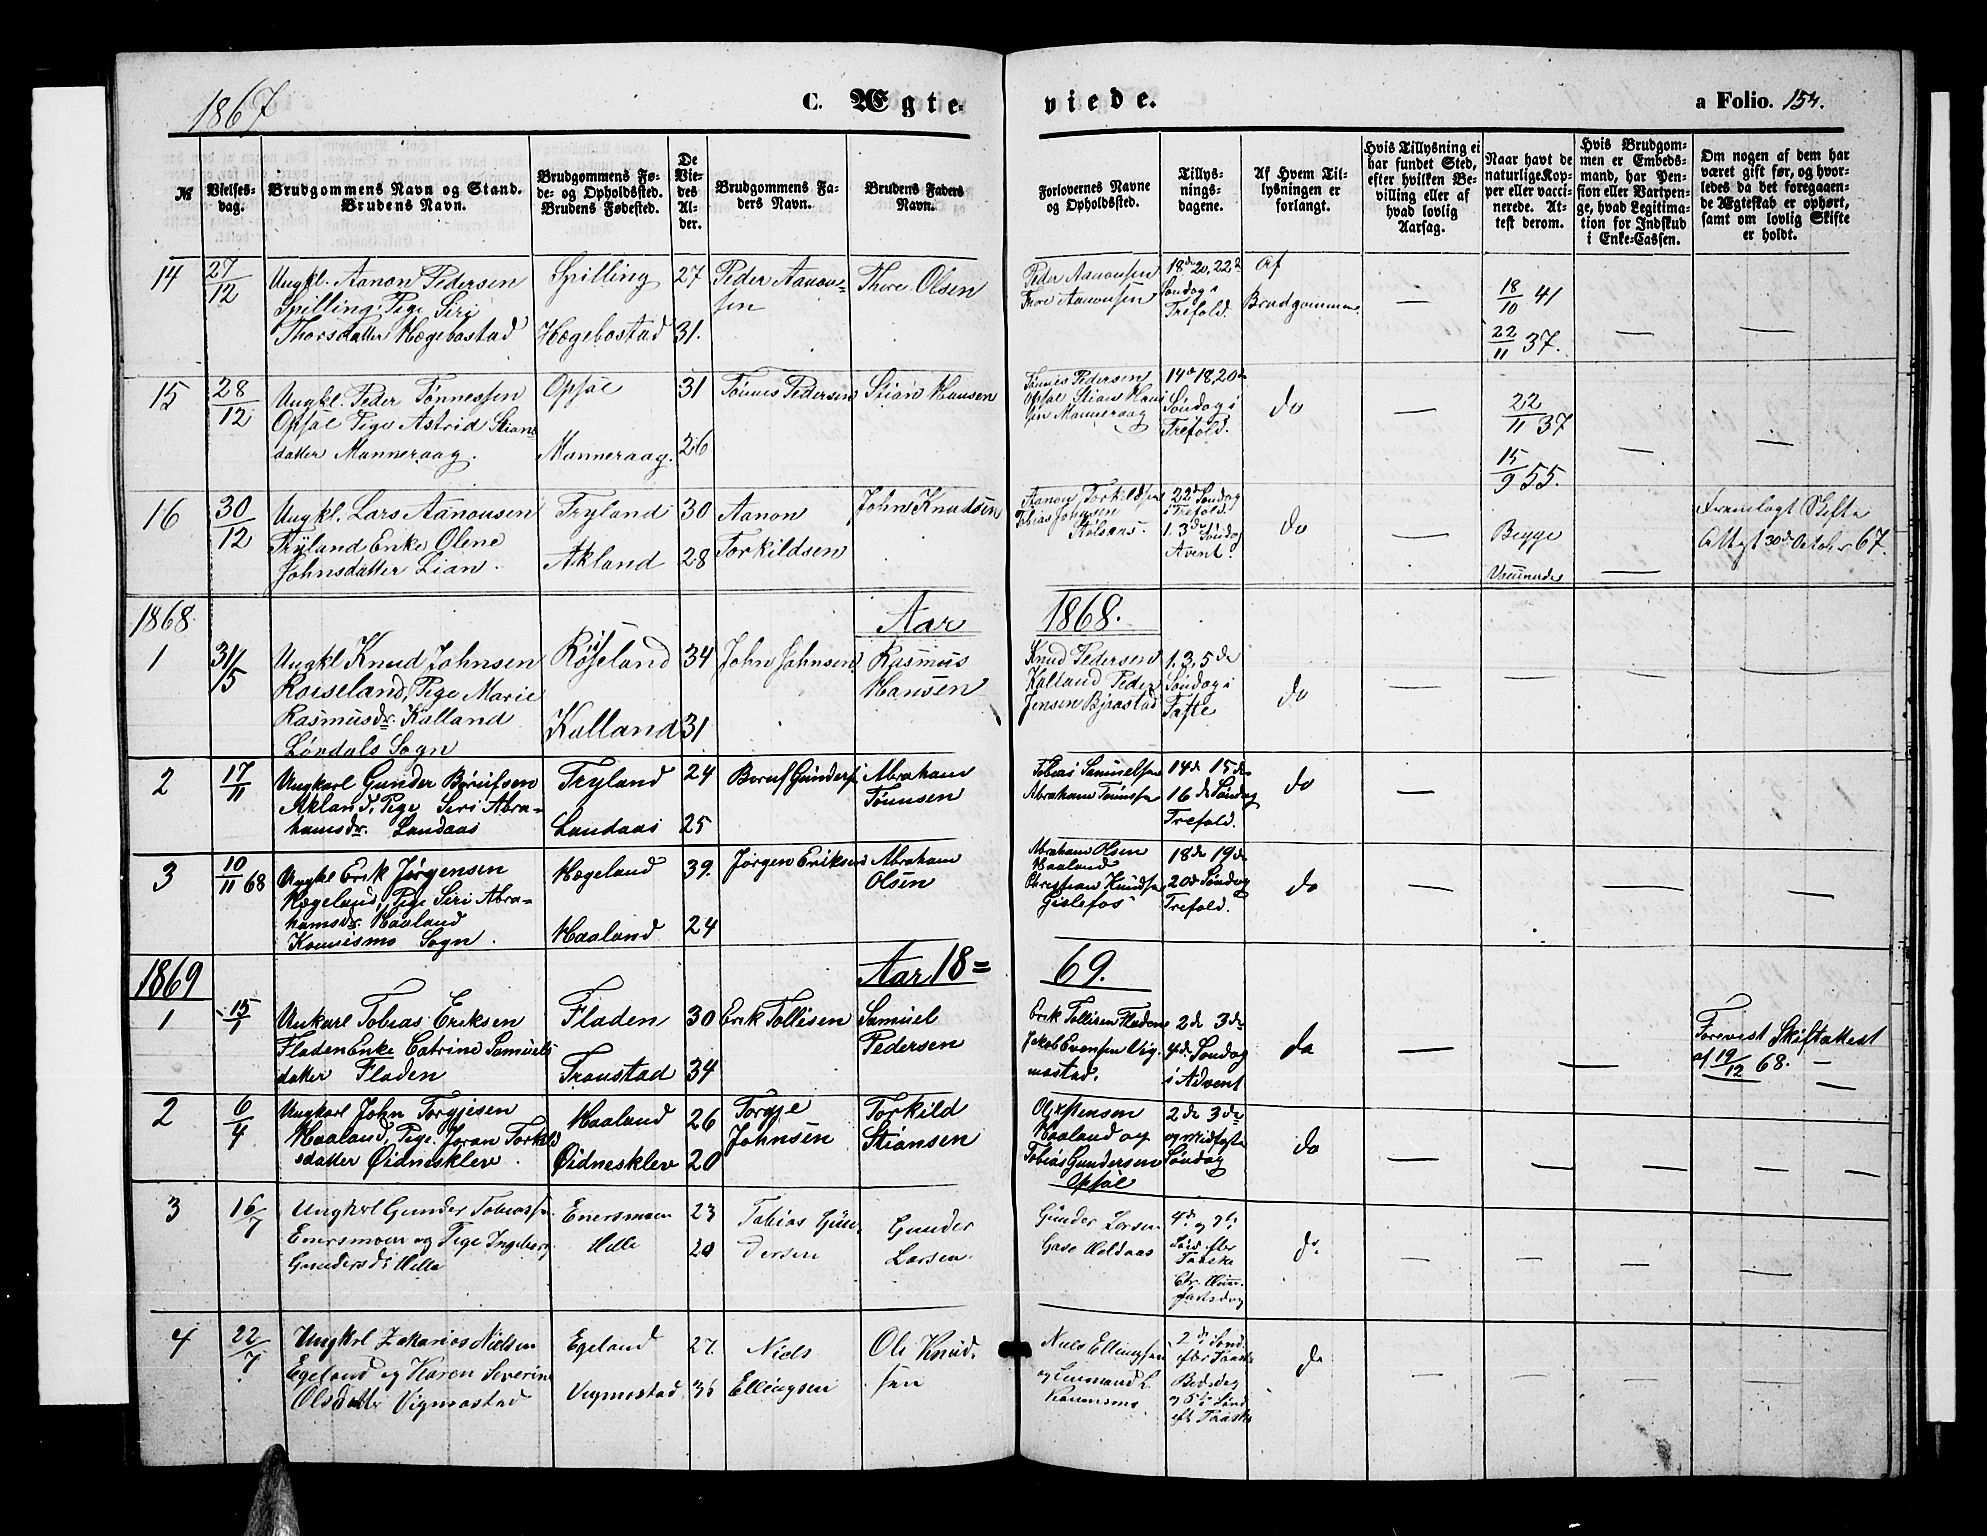 1867
C. Ægte-
viede.
a Folio. 154.
№
Vielses-
dag.
Brudgommens Navn og Stand.
Brudens Navn.
Brudgommens Fø-
de- og Opholdssted.
Brudens Fødested.
De
Vie-
des
Al-
der.
Brudgommens Fa-
ders Navn.
Brudens Faders
Navn.
Forlovernes Navne
og Opholdssted.
Tillys-
nings-
dagene.
Af Hvem Til-
lysningen er
forlangt.
Hvis Tillysning ei
har fundet Sted,
efter hvilken Be-
villing eller af
hvad lovlig
Aarsag.
Naar havt de
naturlige Kop-
per eller vacci-
nerede. At-
test derom.
Hvis Brudgom-
men er Embeds-
mand, har Pen-
sion eller Vartpen-
ge, hvad Legitima-
tion for Indskud
i Enke-Cassen.
Om nogen af dem har
været gift før, og hvor-
ledes da det foregaaen-
de Ægteskab er ophørt,
samt om lovlig Skifte
er holdt.
14
27/12
Ungkl. Aanon Pedersen
Spilling, Pige Siri
Thorsdatter Hægebostad
Spilling
Hægebostad
27
31.
Peder Aanon-
sen
Thore Olsen
Peder Aanonsen
Thore Aanonsen
18de 20, 22de
Søndag i
Trefold.
Af
Brudgommen
—
18/10 41
22/11 37.
—
—
15
28/12
Ungkl. Peder Tønnessen
Opsøl Pige Astrid Stians
datter Manneraag.
Opsøl
Manneraag.
31
26
Tønnes Pedersen
Stian Hansen
Tønnes Pedersen
Opsøl Stian Han
sen Manneraag
14de 18, 20de
Søndag i
Trefold.
do
—
22/11 37
15/9 55.
—
—
16
30/12
Ungkl. Lars Aanonsen
Tryland Enke Olene
Johnsdatter Lian.
Tryland
Akland
30
28
Aanon
Torkildsen
John Knudsen
Aanon Torkildsen
Tobias Johnsen
22de Søndag
i Trefold.
1. 3de Søndag
Avent.
do
—
Begge
—
Fremlagt Skifte
Attest 30de October 67.
1868
Aar
1868.
1
31/5
Ungkl Knud Johnsen
Roiseland, Pige Marie
Rasmusdr. Kalland
Løvdals Sogn
Røiseland
Kalland
34
31
John Johnsen
Rasmus
Hansen
Knud Pedersen
Kalland Peder
Jensen Bjaastad
1. 3, 5de
Søndag i
Faste
do
—
—
—
—
2
17/11
Ungkarl Gunder Børufsen
Akland, Pige Siri Abra-
hamsdr. Landaas
Tryland
Landaas
24
25
Boruf Gunders
Abraham
Tønnsen
Tobias Samuelsen
Abraham Tønnsen
14de 15de
16de Søndag
Trefold.
do
—
3
10/11 68
Ungkl Erik Jørgensen
Hægeland, Pige Siri Abra-
hamsdr. Haaland
Sogn.
Hægeland
Haaland
39.
24
Jørgen Eriksen
Abraham
Olsen
Abraham Olsen
Haaland
Christian Knudsen
Gislefos
18de 19de
20de Søndag
Trefold.
do
—
—
—
—
1869
Aar 18=
69.
1
15/1
Unkarl Tobias Eriksen
Fladen Enke Catrine Samuels
datter Fladen
Fladen
Tronstad
30
34
Erik Tollisen
Samuel
Pedersen
Erik Tollisen Fladen
Jakob Evensen Vig-
mostad.
2de 3de
4de Søndag
i Advent
do
—
—
—
Forevist Skiftattest
af 19/12 68. —
—
2
6/4
Ungkarl John Torgjesen
Haaland, Pige. Joran Torkild
sdatter Øidnesklev.
Haaland
Øidnesklev
26
20
Torgje
Johnsen
Torkild
Stiansen
Haaland og
Tobias Gundersen
Opsøl
2de 3de
og Midfaste
Søndag
do
—
—
—
—
3
16/7
Ungkrl Gunder Tobiassen
Enersmoen og Pige Ingeborg
Gundersd: Hille
Enersmoen
Hille
23
20
Tobias Gun-
dersen
Gunder
Larsen
Gunder Larsen
4de og 9de
Sønd. efter
Paaske
do
—
—
—
—
4
22/7
Ungkrl Zakarias Nielsen
Egeland og Karen Severine
Olsdatter Vigmostad
Egeland
Vigmostad
27
36
Niels
Ellingsen
Ole Knud-
sen
Niels Ellingsen
2de Sønd.
efter Paaske
Bededag
og 5te Sønd
eft Paaske
do
—
—
—
—